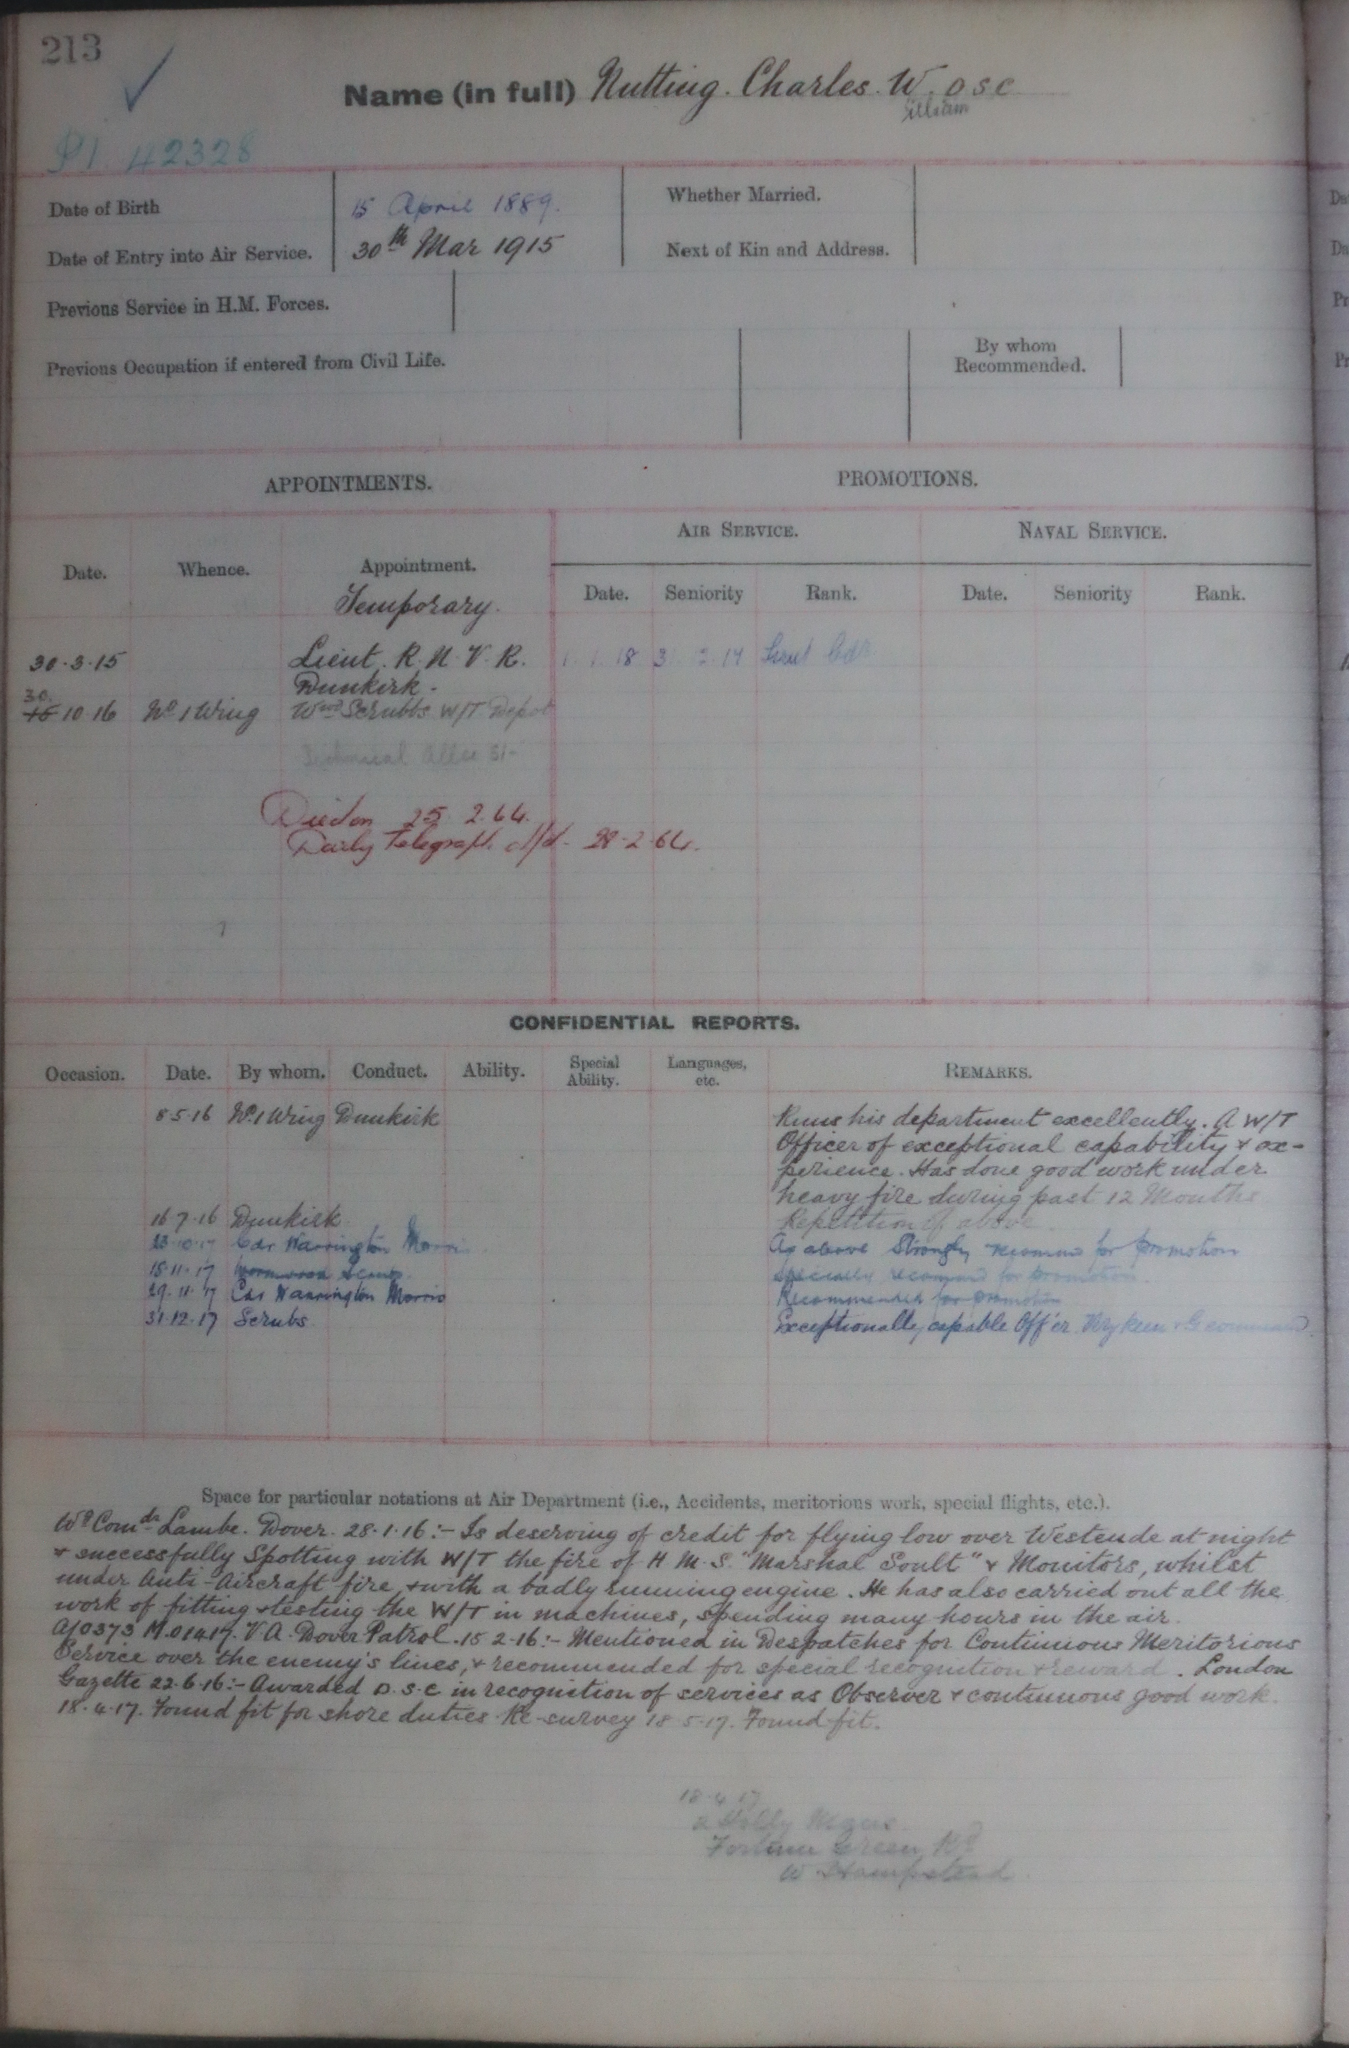 213
Name (in full) Nutting. Charles. W. DSC
William
P1. 42328
Date of Birth 15 April 1889. Whether Married.
Date of Entry into Air Service. 30th Mar 1915 Next of Kin and Address.
Previous Service in H.M. Forces.
Previous Occupation if entered from Civil Life. By whom Recommended.
APPOINTMENTS. PROMOTIONS.
AIR SERVICE. NAVAL SERVICE.
Date. Whence. Appointment. Date. Seniority Rank. Date. Seniority Rank.
Temporary.
30.3.15 Lieut. R.N.V.R. 1. 1. 18 31 Lieut Cdr.
Dunkirk.
30.
15 10 16 No 1 Wing Wwd Scrubbs W/T Depot
Technical Allce
Died on 25. 2.64.
Daily Telegraph d/d. 28.2.64.
CONFIDENTIAL REPORTS.
Occasion. Date. By whom. Conduct. Ability. Special Ability. Languages, etc. REMARKS.
8.5.16 No 1 Wing Dunkirk Runs his department excellently. A W/T
Officer of exceptional capability & ex-
perience. Has done good work under
heavy fire during past 12 Months
16.7.16 Dunkirk. Repetition of above.
13.10.17 Cdr Warrington Morris As above Strongly recommend for promotion
18.11.17 Wormwood Scrubs. Specially recommend for promotion.
29.11.17 Cdr Warrington Morris Recommended for promotion
31.12.17 Scrubs. Exceptionally capable Off'er. Very keen
Space for particular notations at Air Department (i.e., Accidents, meritorious work, special flights, etc.).
Wg Comdr Lambe. Dover. 28.1.16:- Is deserving of credit for flying low over Westende at night
& successfully Spotting with W/T the fire of H.M.S. "Marshal Soult" & Monitors, whilst
under Anti-Aircraft fire, & with a badly running engine. He has also carried out all the
work of fitting & testing the W/T in machines, spending many hours in the air.
A10373 M.01417. V.A. Dover Patrol. 15 2.16:- Mentioned in Despatches for Continuous Meritorious
Service over the enemy's lines, & recommended for special recognition & reward. London
Gazette 22.6.16:- Awarded D.S.C in recognition of services as Observer & continuous good work.
18.4.17. Found fit for shore duties. Re-survey 18.5.17. Found fit.
18.4.17
2 Holly
Fortune Green Rd
W. Hampstead.